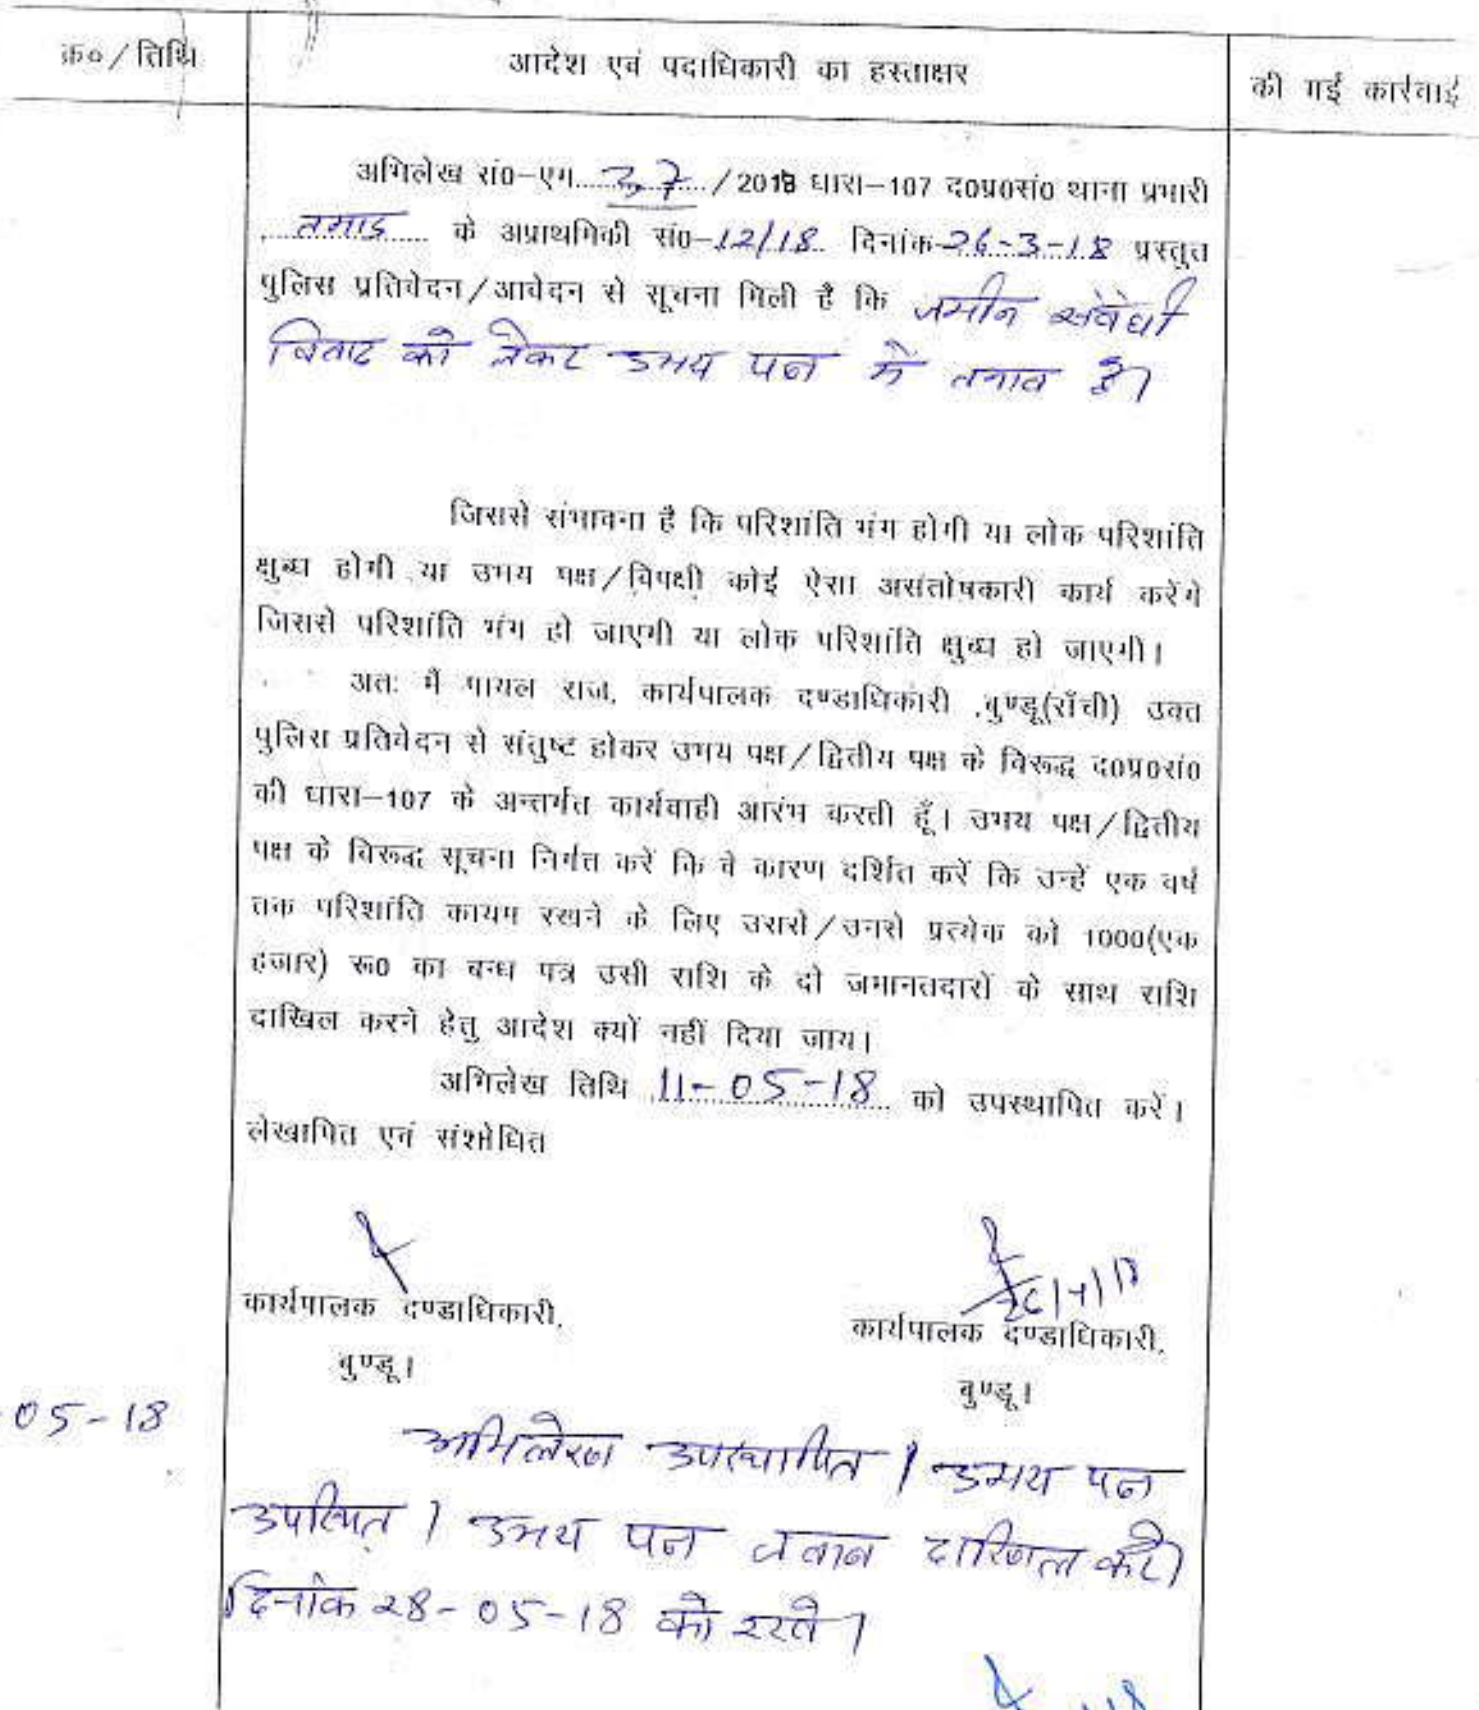 क्र०/तिथि
आदेश एवं पदाधिकारी का हस्ताक्षर
की गई कार्रवाई
अभिलेख सं०-एम. 37 /2018 धारा-107 द०प्र०सं० थाना प्रभारी
तमाड़ के अप्राथमिकी सं०-12/18 दिनांक-26-3-18 प्रस्तुत
पुलिस प्रतिवेदन/आवेदन से सूचना मिली है कि जमीन संबंधी
विवाद को लेकर उभय पक्ष में तनाव है।
जिससे संभावना है कि परिशांति भंग होगी या लोक परिशांति
क्षुब्ध होगी या उभय पक्ष/विपक्षी कोई ऐसा असंतोषकारी कार्य करेंगे
जिससे परिशांति भंग हो जाएगी या लोक परिशांति क्षुब्ध हो जाएगी।
अतः मैं पायल राज, कार्यपालक दण्डाधिकारी ,बुण्डू(राँची) उक्त
पुलिस प्रतिवेदन से संतुष्ट होकर उभय पक्ष/द्वितीय पक्ष के विरूद्ध द०प्र०सं०
की धारा-107 के अन्तर्गत कार्यवाही आरंभ करती हूँ। उभय पक्ष/द्वितीय
पक्ष के विरूद्ध सूचना निर्गत करें कि वे कारण दर्शित करें कि उन्हें एक वर्ष
तक परिशांति कायम रखने के लिए उससे/उनसे प्रत्येक को 1000(एक
हजार) रू० का बन्ध पत्र उसी राशि के दो जमानतदारों के साथ राशि
दाखिल करने हेतु आदेश क्यों नहीं दिया जाय।
अभिलेख तिथि 11-05-18 को उपस्थापित करें।
लेखापित एवं संशोधित
कार्यपालक दण्डाधिकारी,
बुण्डू।
कार्यपालक दण्डाधिकारी,
बुण्डू।
05-18
अभिलेख उपस्थापित। उभय पक्ष
उपस्थित। उभय पक्ष जवाब दाखिल करें।
दिनांक 28-05-18 को रखें।